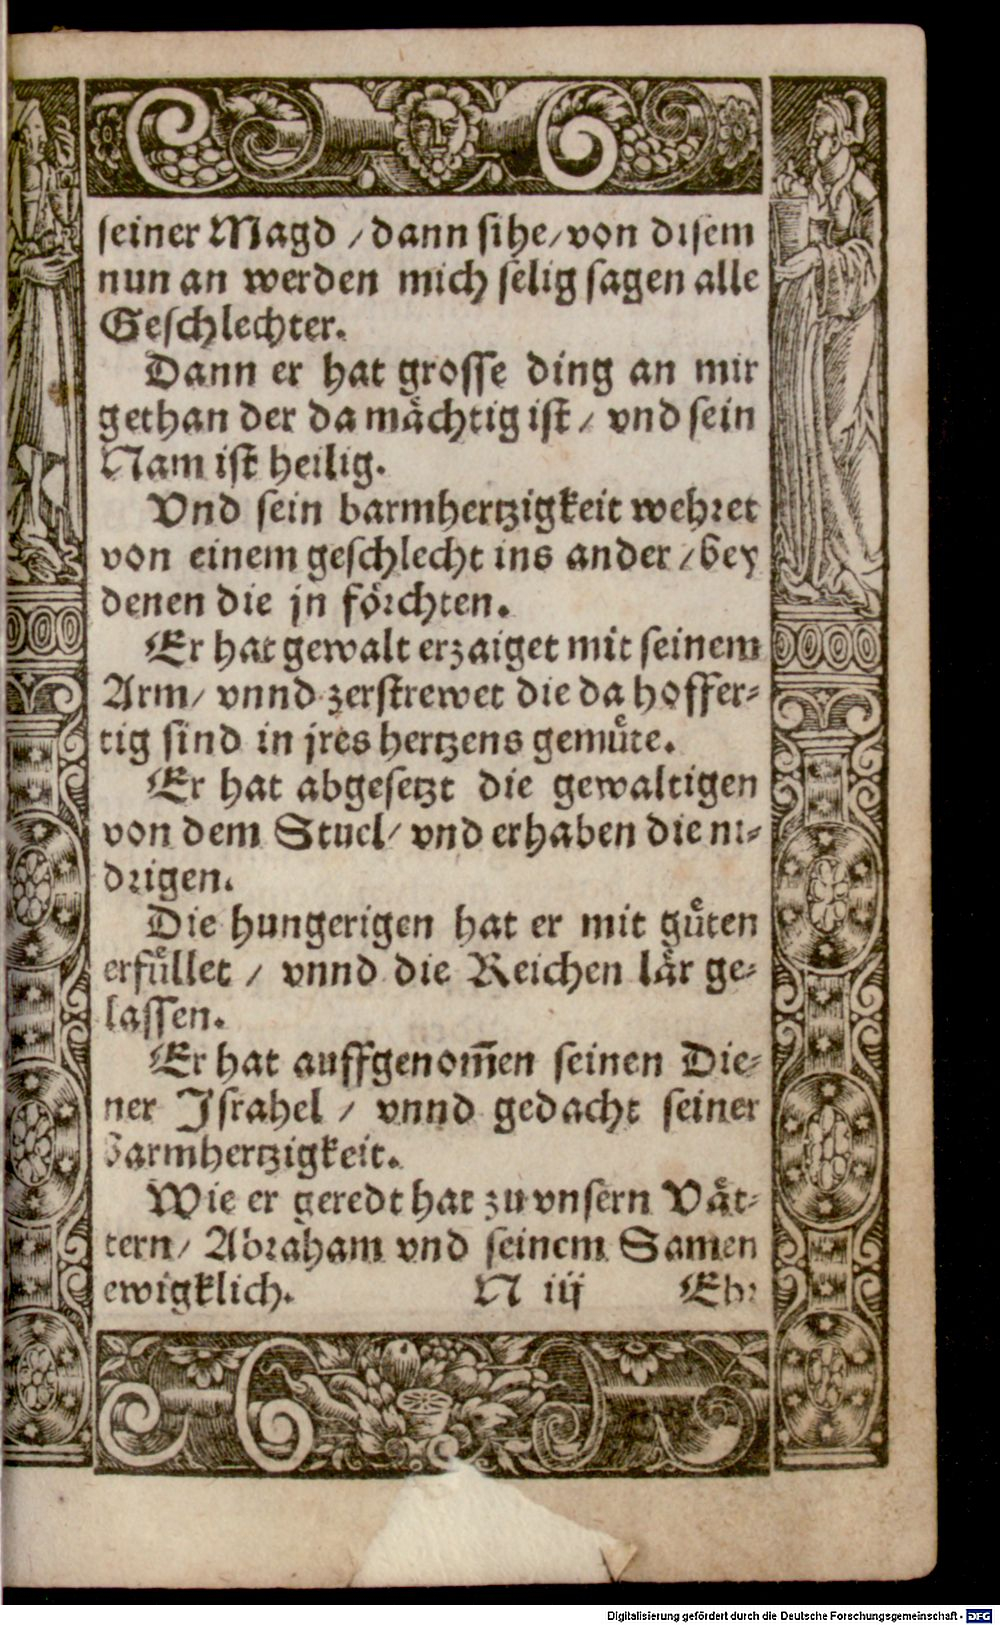 seiner Magd / dann sihe / von disem
nun an werden mich selig sagen alle
Geschlechter.
Dann er hat grosse ding an mir
gethan der da mächtig ist / vnd sein
Nam ist heilig.
Vnd sein barmhertzigkeit wehret
von einem geschlecht ins ander / bey
denen die jn förchten.
Er hat gewalt erzaiget mit seinem
Arm / vnnd zerstrewet die da hoffer-
tig sind in jres hertzens gemuͤte.
Er hat abgesetzt die gewaltigen
von dem Stuel / vnd erhaben die ni-
drigen.
Die hungerigen hat er mit guͤten
erfuͤllet / vnnd die Reichen laͤr ge-
lassen.
Er hat auffgenom̃en seinen Die-
ner Jsrahel / vnnd gedacht seiner
Barmhertzigkeit.
Wie er geredt hat zu vnsern Vaͤt-
tern / Abraham vnd seinem Samen
ewigklich. N iij Ehr
Digitalisierung gefördert durch die Deutsche Forschungsgemeinschaft - DFG